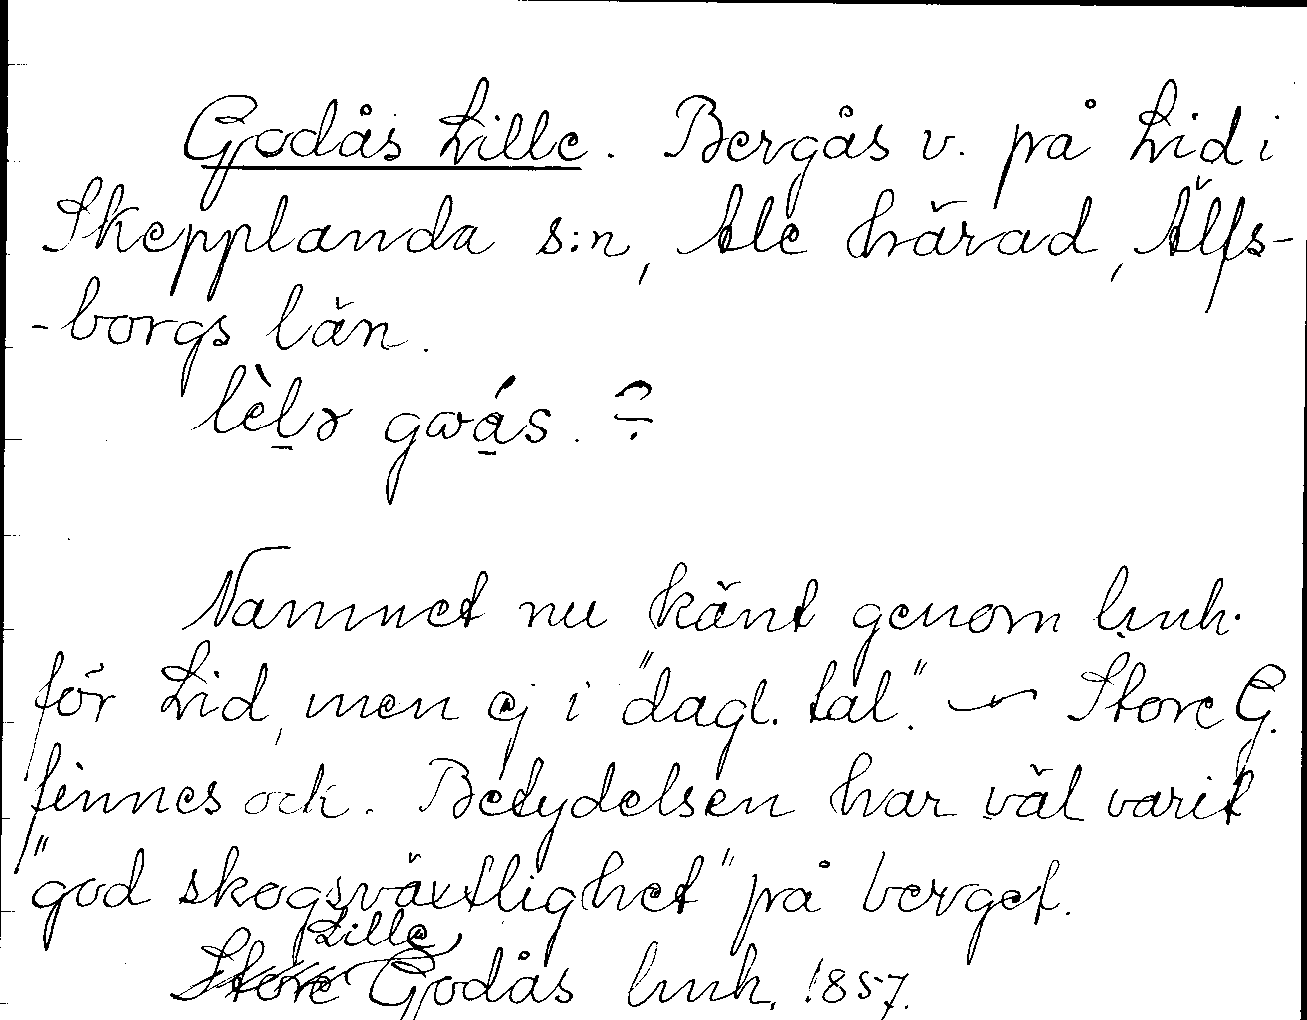 Godås Lille. Bergås v. på Lid i
Skepplanda s:n, Ale härad, Älfs-
-borgs län.
lèlə gωás.
Namnet nu känt genom lmh.
för Lid, men ej i "dagl. tal". — Store G.
finnes ock. Betydelsen har väl varit
"god skogsväxtlighet" på berget.
Lille
Store Godås lmh. 1857.